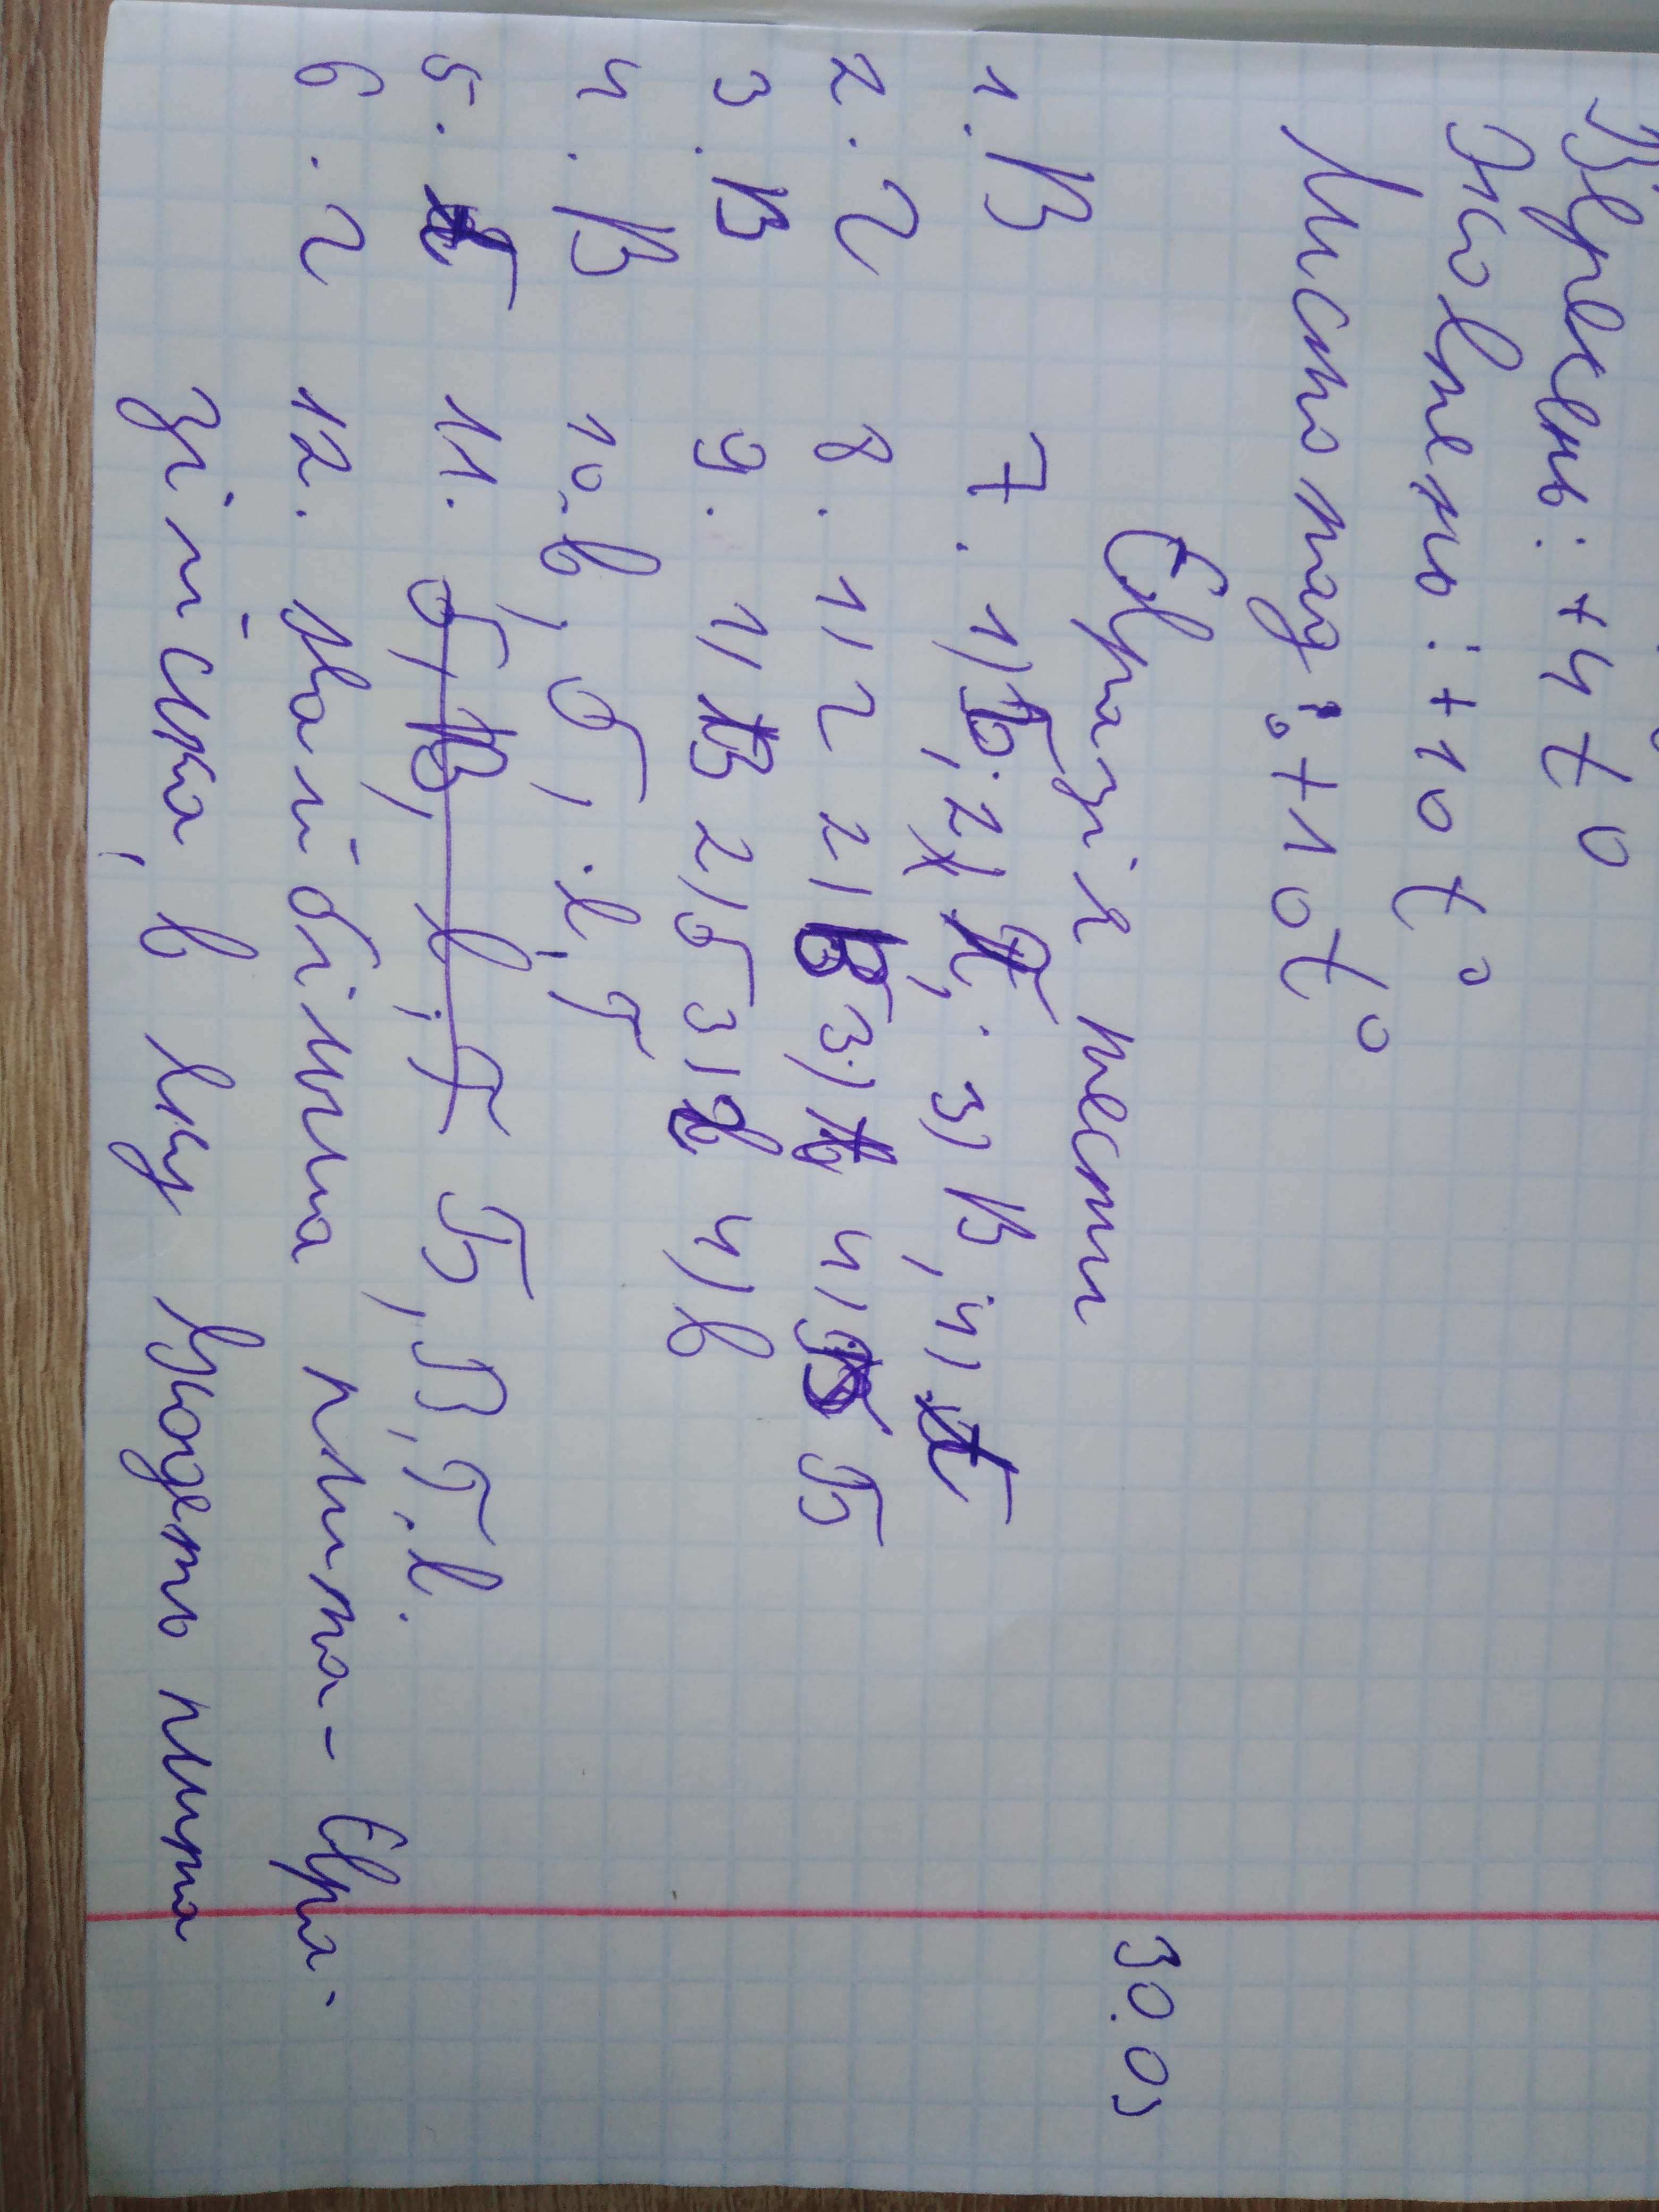 Вересень: +4 t 0
Жовтень: +10 t°
Листопад: +10t°
Євразія тести
30.03
1. В 7. 1) Б; 2) Г; 3) В, 4)
2. Г 8. 1) Г 2) Б 3) 4) Б
3. В 9. 1) В 2) б 3) г 4) в
4. В 10. в, б, г
5. 11. Б, В, Г.
6. Г 12. найбільша плита - Євра-
зійська, в яку входять плита